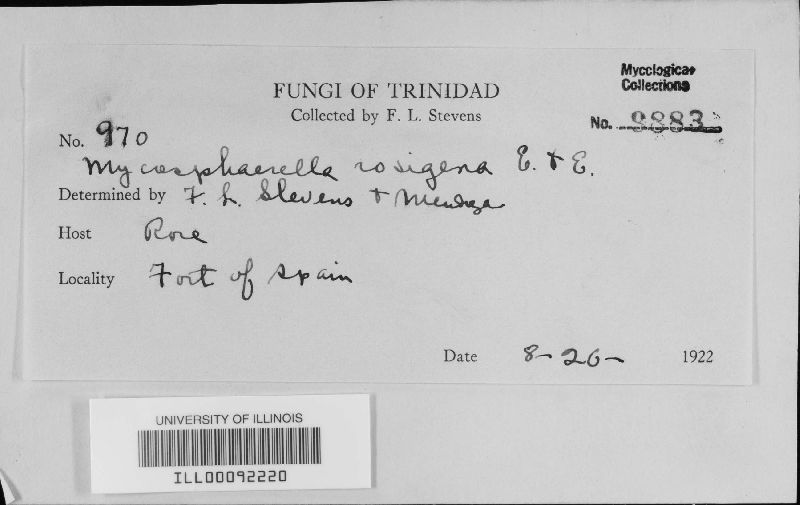 Mycological
Collections
No. 9883
FUNGI OF TRINIDAD
Collected by F. L. Stevens
No. 970
Mycosphaerella rosigena E. & E.
Determined by F. L. Stevens & Mendoza
Host Rose
Locality Fort of Spain
Date 8-26- 1922
UNIVERSITY OF ILLINOIS
ILL00092220